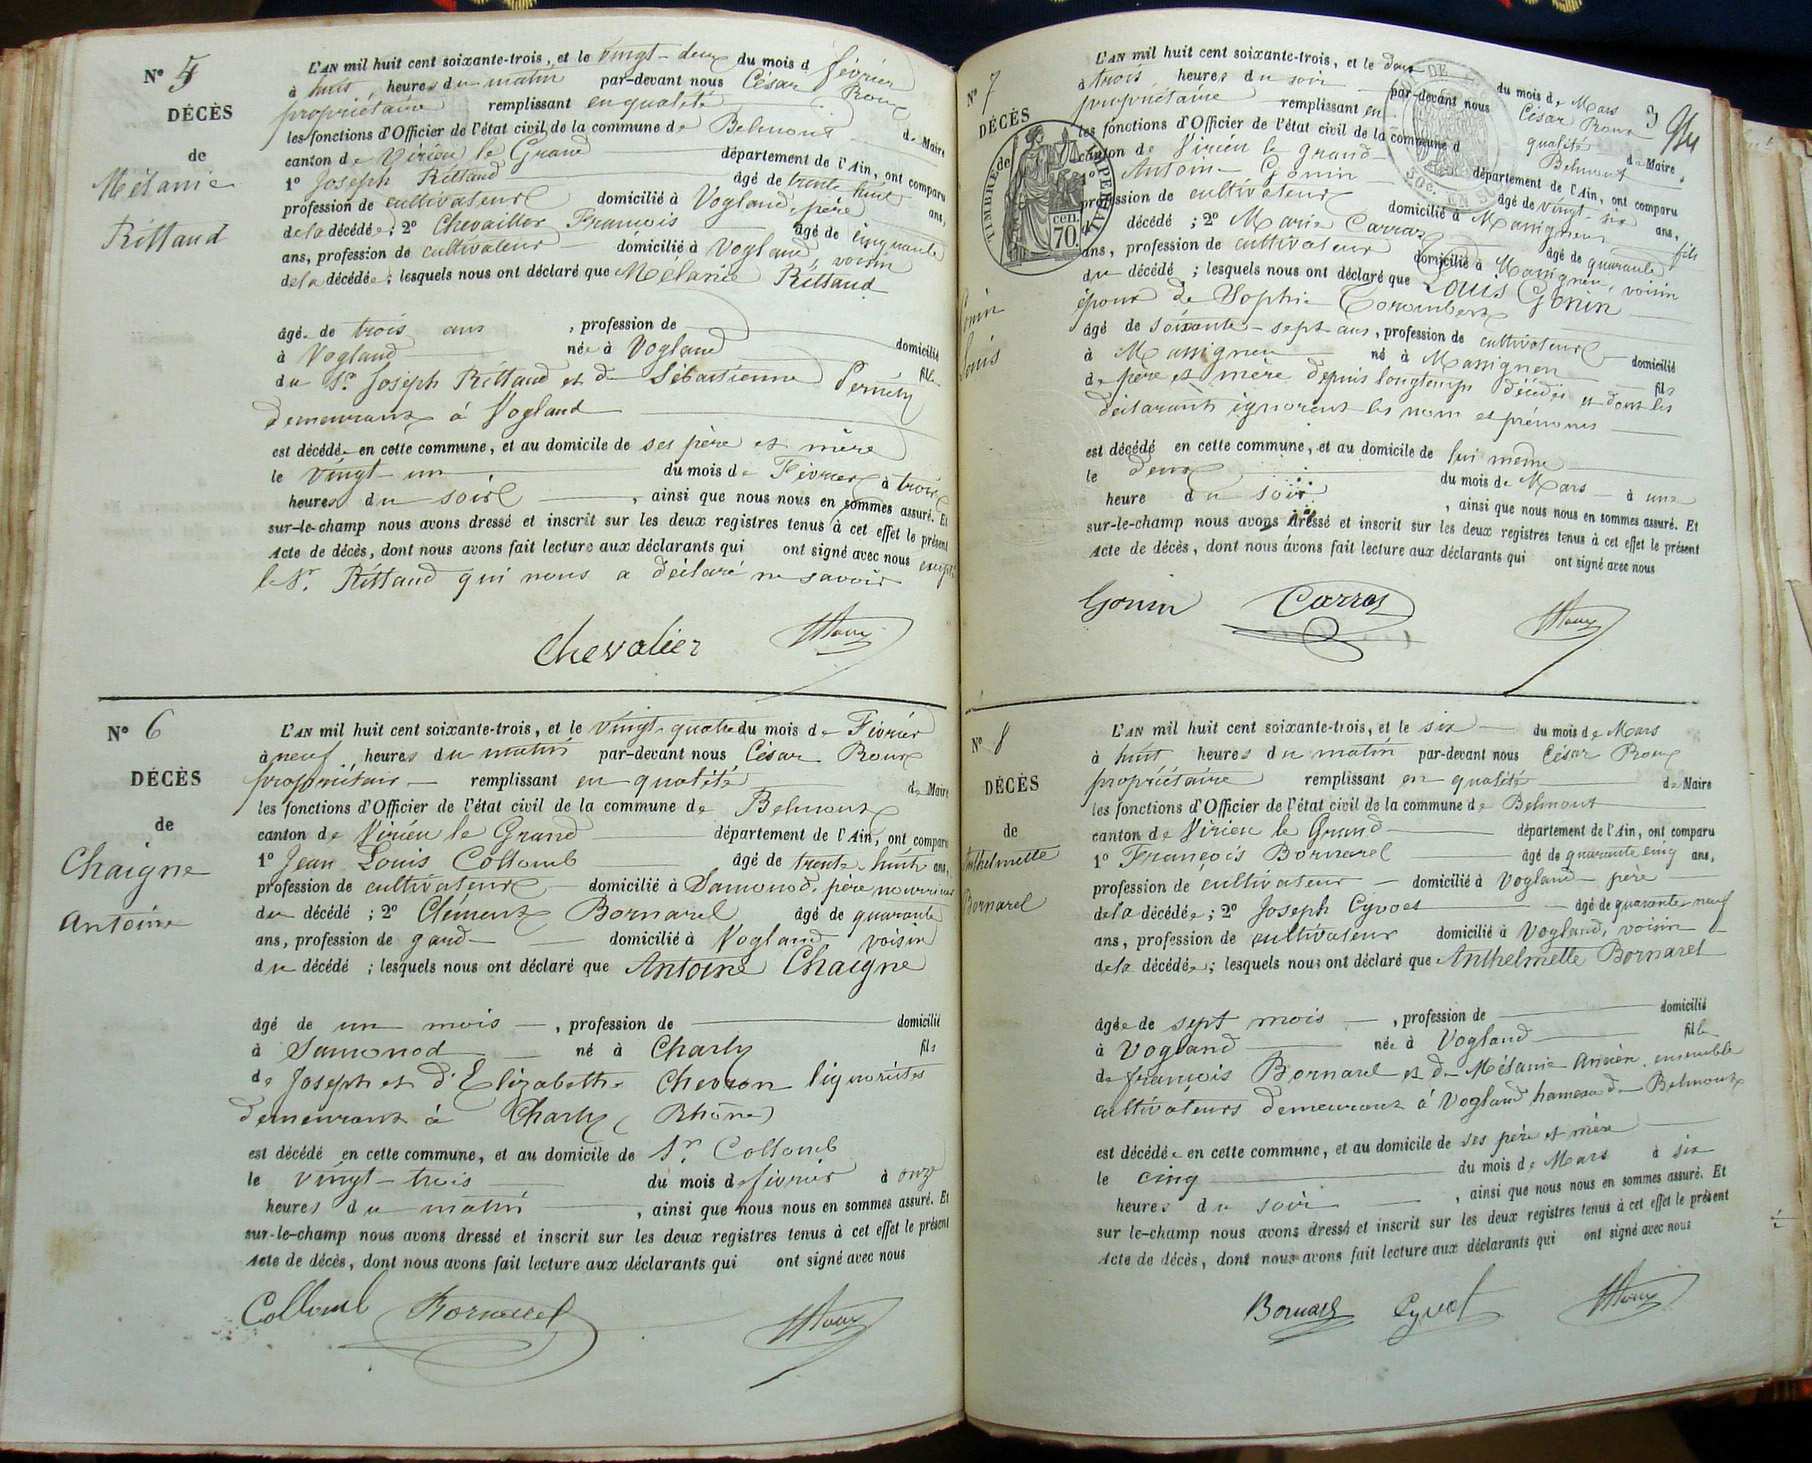 N° 5
DÉCÈS
de
Mélanie
Rittaud
L'AN mil huit cent soixante-trois, et le vingt-deux du mois d février
à huit heures du matin par-devant nous César Roux
propriétaire remplissant en qualité de Maire
les fonctions d'Officier de l'état civil de la commune de Belmont
canton de Virieu le Grand département de l'Ain, ont comparu
1° Joseph Rittaud âgé de trente huit ans,
profession de cultivateur domicilié à Vogland, père
de la décédée; 2° Chevallier François âgé de cinquante
ans, profession de cultivateur domicilié à Vogland, voisin
de la décédée; lesquels nous ont déclaré que Mélanie Rittaud
âgé de trois ans, profession de domicilié
à Vogland née à Vogland fille
du Sr Joseph Rittaud et de Sébastienne
demeurant à Vogland
est décédée en cette commune, et au domicile de ses père et mère
le vingt-un du mois de Février à trois
heures du soir, ainsi que nous nous en sommes assuré. Et
sur-le-champ nous avons dressé et inscrit sur les deux registres tenus à cet effet le présent
Acte de décès, dont nous avons fait lecture aux déclarants qui ont signé avec nous excepté
le Sr. Rittaud qui nous a déclaré ne savoir
Chevalier Roux
N° 6
DÉCÈS
de
Chaigne
Antoine
L'AN mil huit cent soixante-trois, et le vingt-quatre du mois de Février
à neuf heures du matin par-devant nous César Roux
propriétaire remplissant en qualité de Maire
les fonctions d'Officier de l'état civil de la commune de Belmont
canton de Virieu le Grand département de l'Ain, ont comparu
1° Jean Louis Collomb âgé de trente-huit ans,
profession de cultivateur domicilié à Samonod, père nourricier
du décédé; 2° Clément Bornarel âgé de quarante
ans, profession de gard domicilié à Vogland voisin
du décédé; lesquels nous ont déclaré que Antoine Chaigne
âgé de un mois, profession de domicilié
à Samonod né à Charly fils
de Joseph et d'Elizabeth Chevron liquoristes
demeurant à Charly (Rhône)
est décédé en cette commune, et au domicile de Sr. Collomb
le vingt-trois du mois de février à onze
heures du matin, ainsi que nous nous en sommes assuré. Et
sur-le-champ nous avons dressé et inscrit sur les deux registres tenus à cet effet le présent
Acte de décès, dont nous avons fait lecture aux déclarants qui ont signé avec nous
Collomb Bornarel Roux
N° 7
DÉCÈS
TIMBRE IMPÉRIAL
70 cen.
Gonin
Louis
L'AN mil huit cent soixante-trois, et le deux du mois de Mars
à trois heures du soir par-devant nous César Roux
propriétaire remplissant en qualité de Maire
les fonctions d'Officier de l'état civil de la commune d Belmont
canton de Virieu le grand département de l'Ain, ont comparu
1° Antoine Gonin âgé de vingt-six ans,
profession de cultivateur domicilié à Massignieu fils
du décédé; 2° Marie Carraz âgé de quarante
ans, profession de cultivateur domicilié à Massignieu, voisin
du décédé; lesquels nous ont déclaré que Louis Gonin
époux de Sophie
âgé de soixante-sept ans, profession de cultivateur domicilié
à Massignieu né à Massignieu fils
de père et mère depuis longtemps décédés et dont les
déclarants ignorent les nom et prénoms
est décédé en cette commune, et au domicile de lui même
le deux du mois de Mars à une
heure du soir, ainsi que nous nous en sommes assuré. Et
sur-le-champ nous avons dressé et inscrit sur les deux registres tenus à cet effet le présent
Acte de décès, dont nous avons fait lecture aux déclarants qui ont signé avec nous
Gonin Carraz Roux
N° 8
DÉCÈS
de
Anthelmette
Bornarel
L'AN mil huit cent soixante-trois, et le six du mois de Mars
à huit heures du matin par-devant nous César Roux
propriétaire remplissant en qualité de Maire
les fonctions d'Officier de l'état civil de la commune de Belmont
canton de Virieu le Grand département de l'Ain, ont comparu
1° François Bornarel âgé de quarante cinq ans,
profession de cultivateur domicilié à Vogland père
de la décédée; 2° Joseph Cyvoct âgé de quarante neuf
ans, profession de cultivateur domicilié à Vogland, voisin
de la décédée; lesquels nous ont déclaré que Anthelmette Bornarel
âgée de sept mois, profession de domicilié
à Vogland née à Vogland fille
de françois Bornarel et de Mélanie ensemble
cultivateurs demeurant à Vogland hameau de Belmont
est décédée en cette commune, et au domicile de ses père et mère
le cinq du mois de Mars à six
heures du soir, ainsi que nous nous en sommes assuré. Et
sur le-champ nous avons dressé et inscrit sur les deux registres tenus à cet effet le présent
Acte de décès, dont nous avons fait lecture aux déclarants qui ont signé avec nous
Bornarel Cyvoct Roux